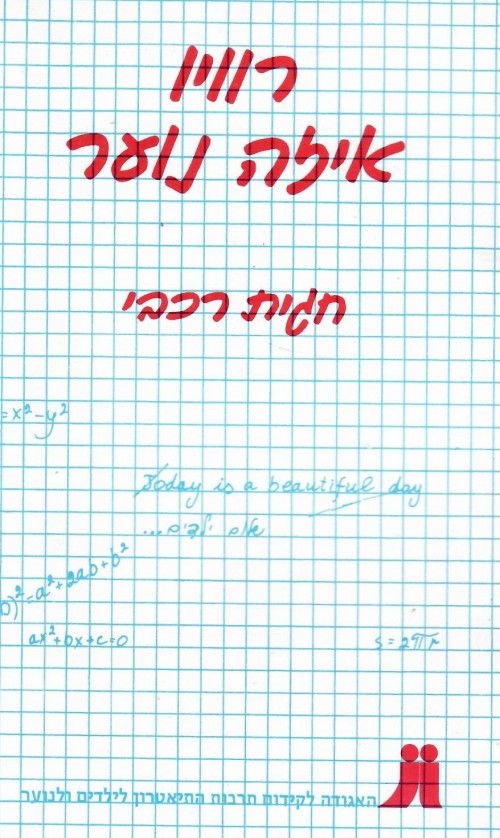 רוויו
איזה נוער
חגית רכבי
=x²-y²
Today is a beautiful day
שלום ילדים...
b)²=a²+2ab+b²
ax²+bx+c=0
s=2πr
האגודה לקידום תרבות התיאטרון לילדים ולנוער